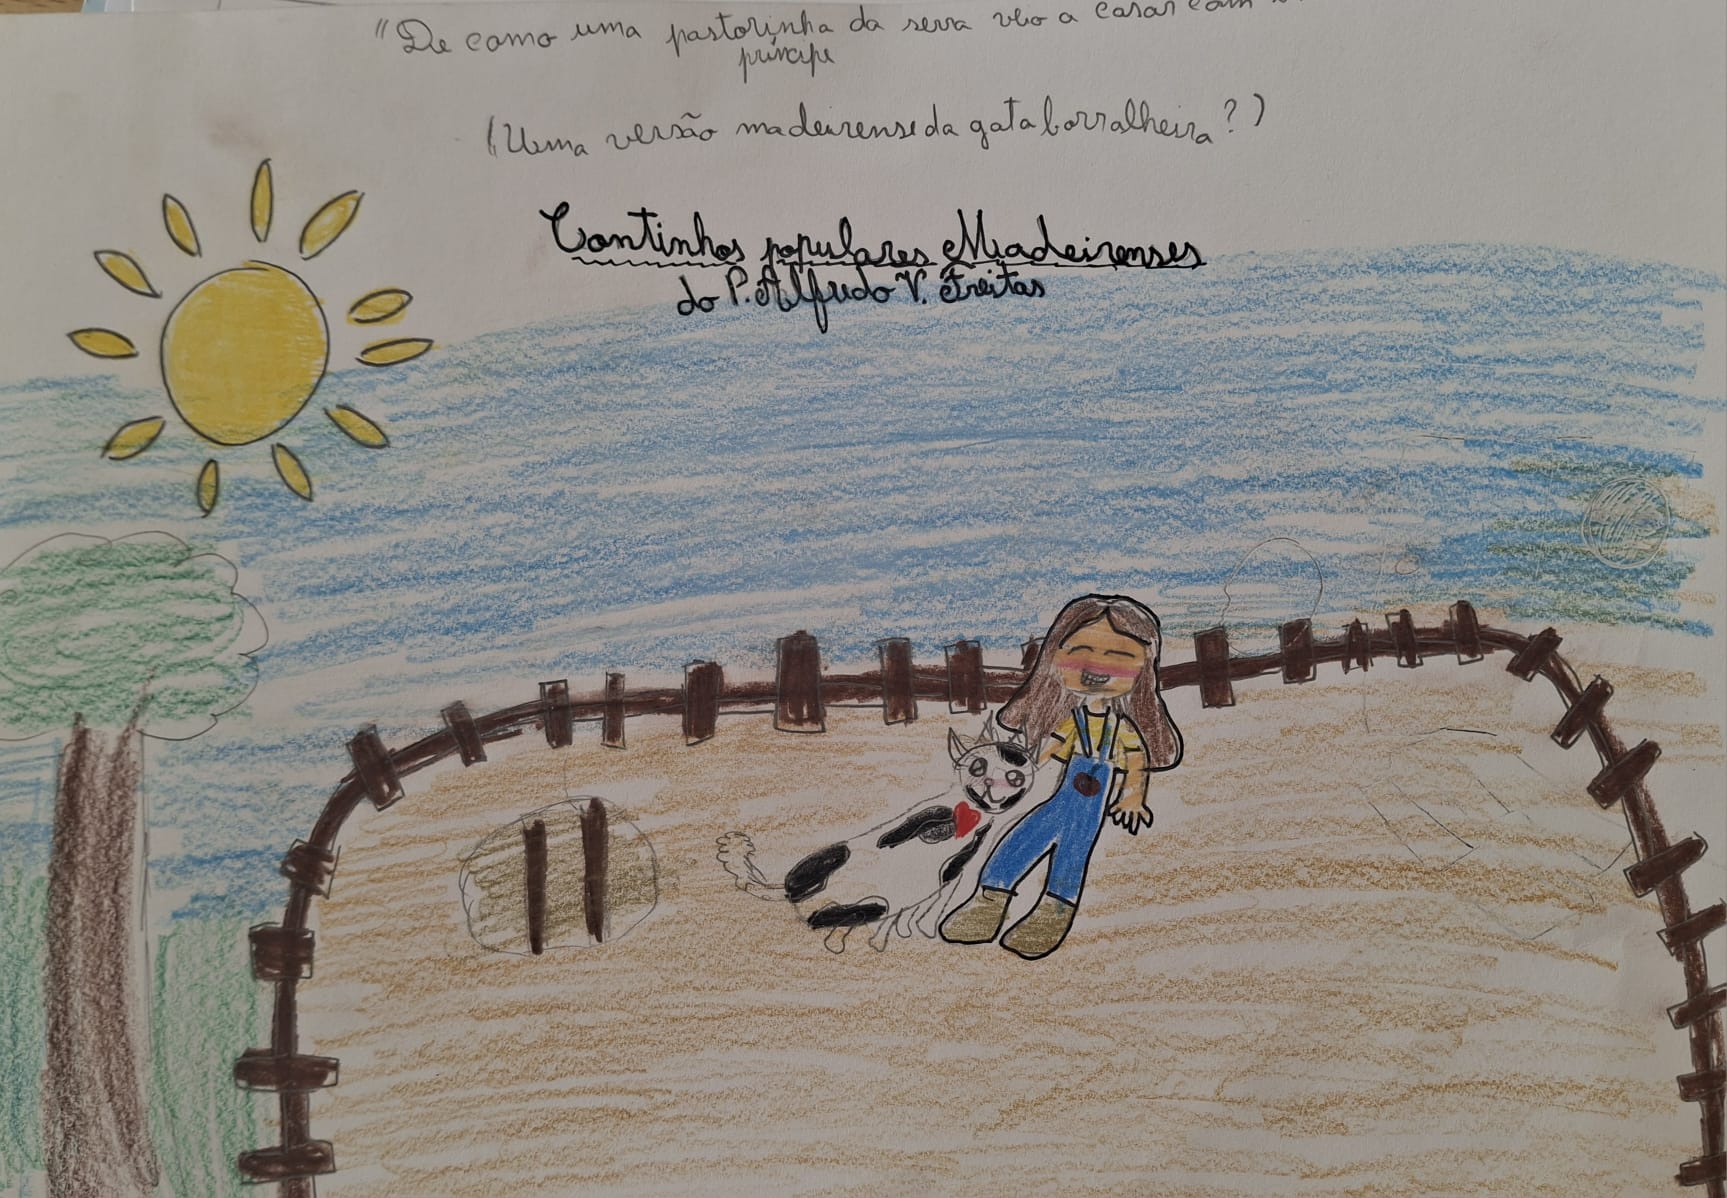 "De como uma pastorinha da serra veio a casar com
príncipe
(Uma versão madeirense da gata borralheira?)
Continhos populares Madeirenses
do P. Alfredo V. Freitas